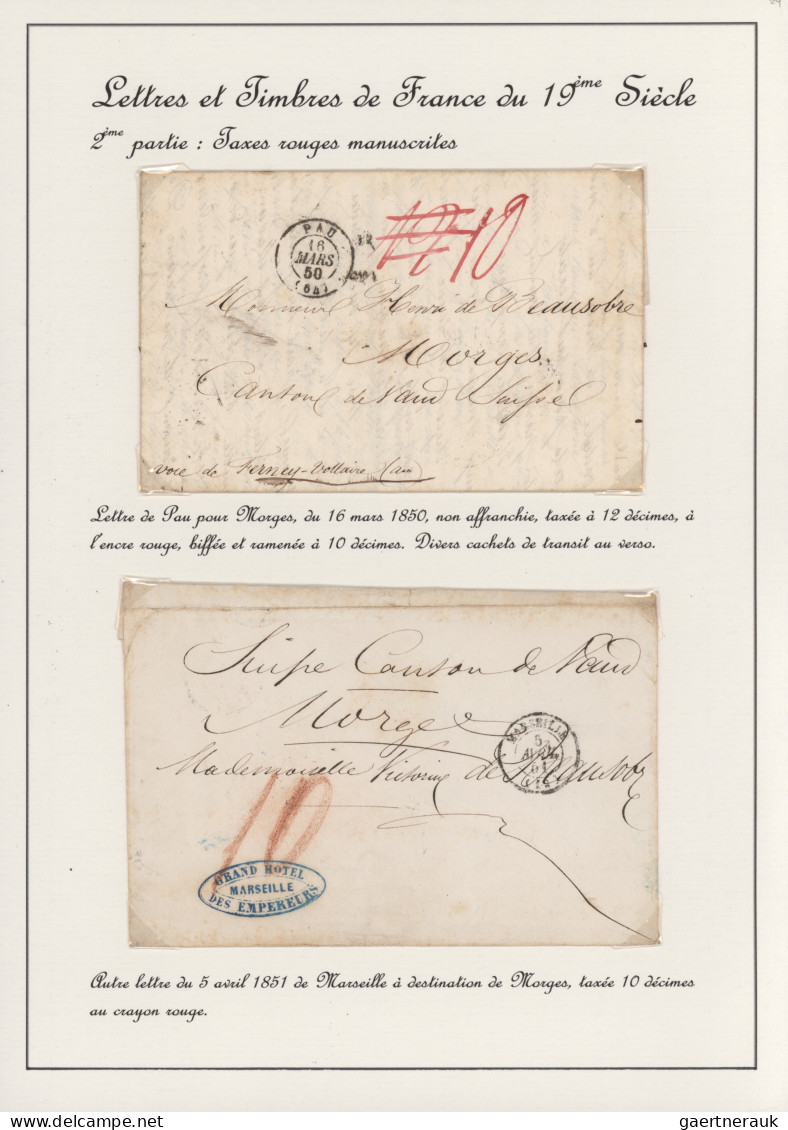 Lettres et Timbres de France du 19ème Siècle
2ème partie : Taxes rouges manuscrites
PAU
16
MARS
50
(64)
12 10
Monsieur Henri de Beausobre
Morges
Canton de Vaud Suisse
voie de Ferney-Voltaire (ain)
Lettre de Pau pour Morges, du 16 mars 1850, non affranchie, taxée à 12 décimes, à
l'encre rouge, biffée et ramenée à 10 décimes. Divers cachets de transit au verso.
Suisse Canton de Vaud
Morges
MARSEILLE
5
AVRIL
51
Mademoiselle Victorine de Beausobre
10
GRAND HOTEL
MARSEILLE
DES EMPEREURS
Autre lettre du 5 avril 1851 de Marseille à destination de Morges, taxée 10 décimes
au crayon rouge.
gaertnerauk